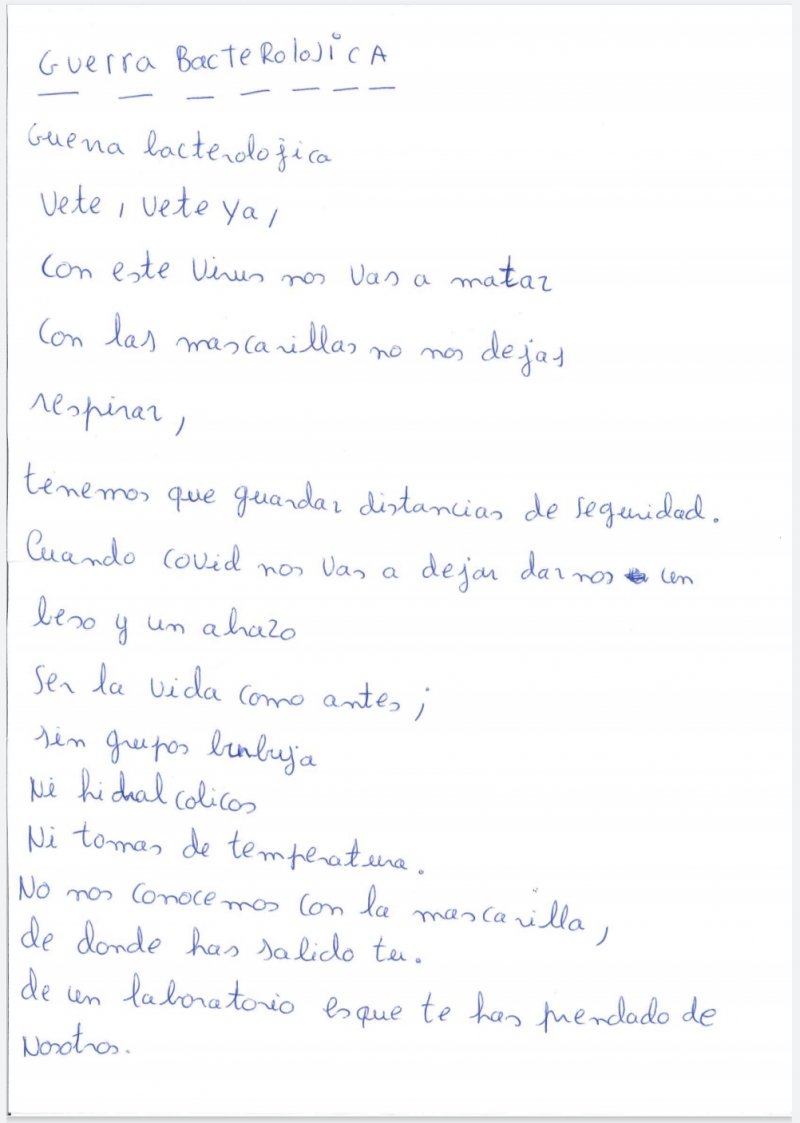 Guerra BacteRoloJicA
Guerra bacterolojica
Vete, vete ya,
Con este Virus nos vas a matar
Con las mascarillas no nos dejas
respirar,
tenemos que guardar distancias de seguridad.
Cuando covid nos vas a dejar darnos un
beso y un abrazo
Ser la vida como antes;
sin grupos burbuja
Ni hidralcolicos
Ni tomas de temperatura.
No nos conocemos con la mascarilla,
de donde has salido tu.
de un laboratorio esque te has prendado de
Nosotros.